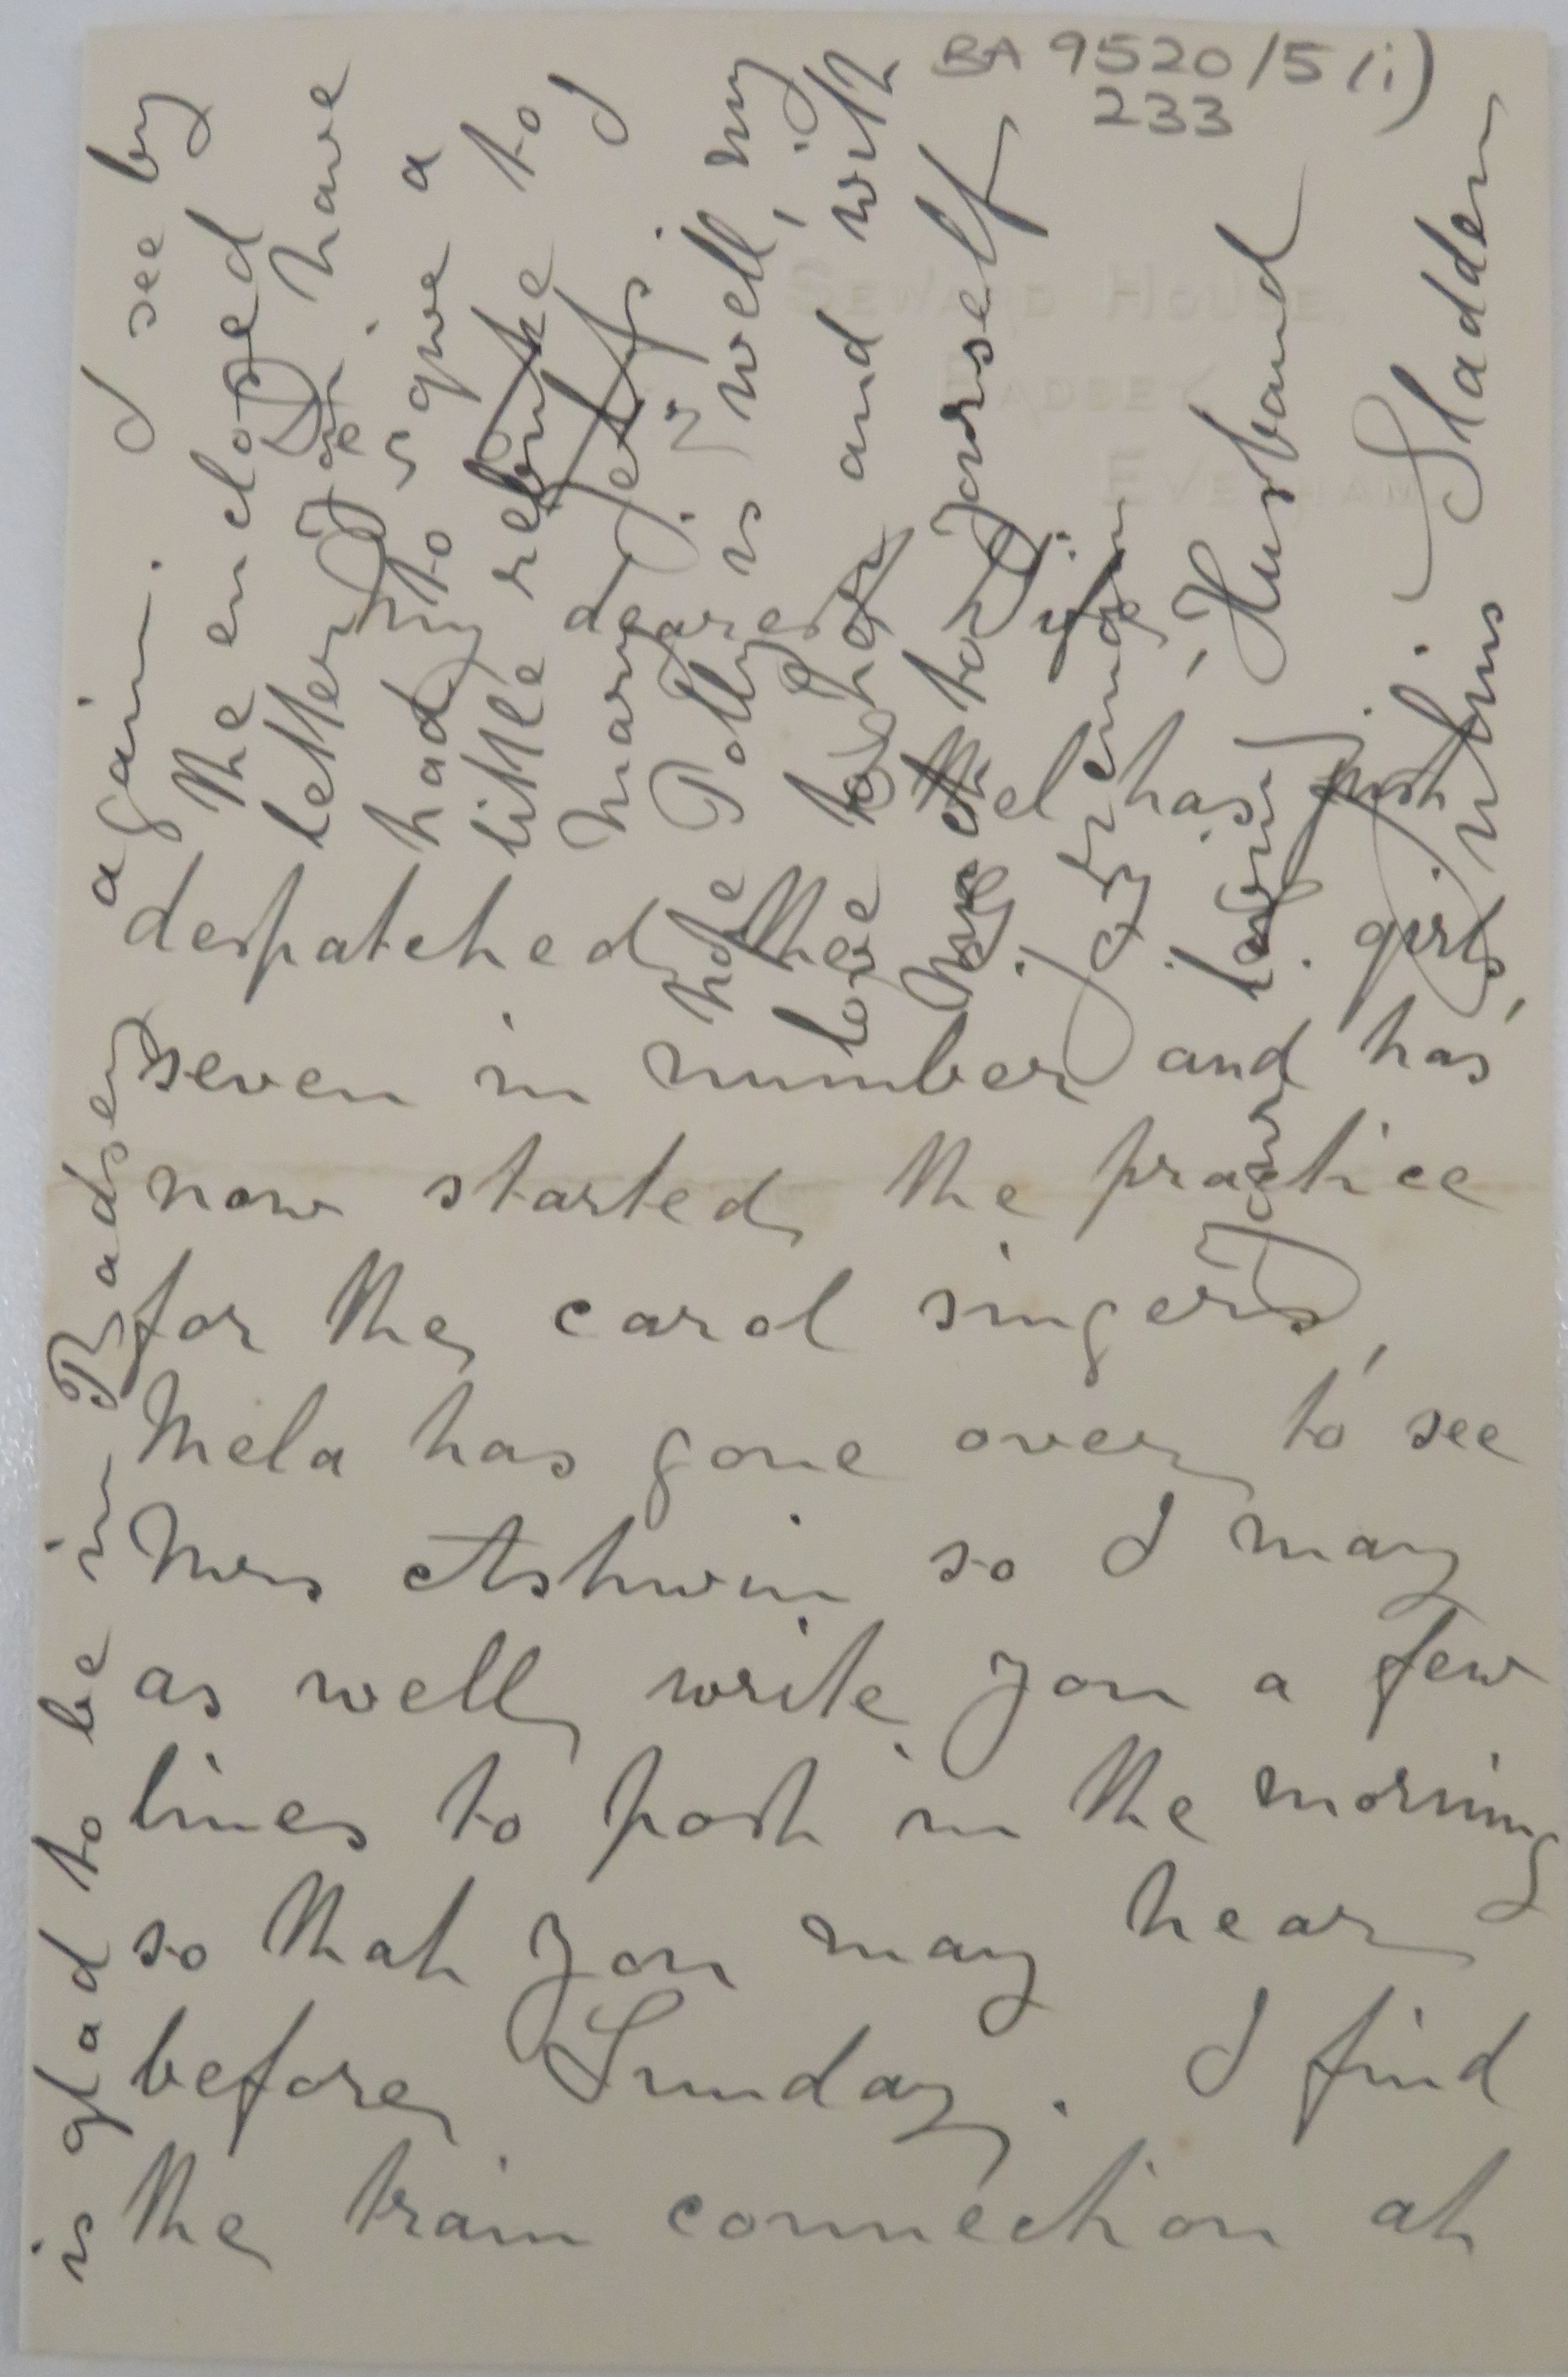 BA 9520/5(i)
233
SEWARD HOUSE,
BADSEY,
EVESHAM.
My dearest Wife,
Ethel has just
despatched the girls,
seven in number and has
now started the practice
for the carol singers,
Mela has gone over to see
Mrs Ashwin so I may
as well write you a few
lines to post in the morning
so that you may hear
before Sunday. I find
the train connection at
is glad to be in Badsey again. I see by
the enclosed
letter you have
had to give a
little rebuke to
Mary Jeffs. I
hope Polly is well, my
love to her and with
to yourself
I remain
your loving Husband
Julius Sladden